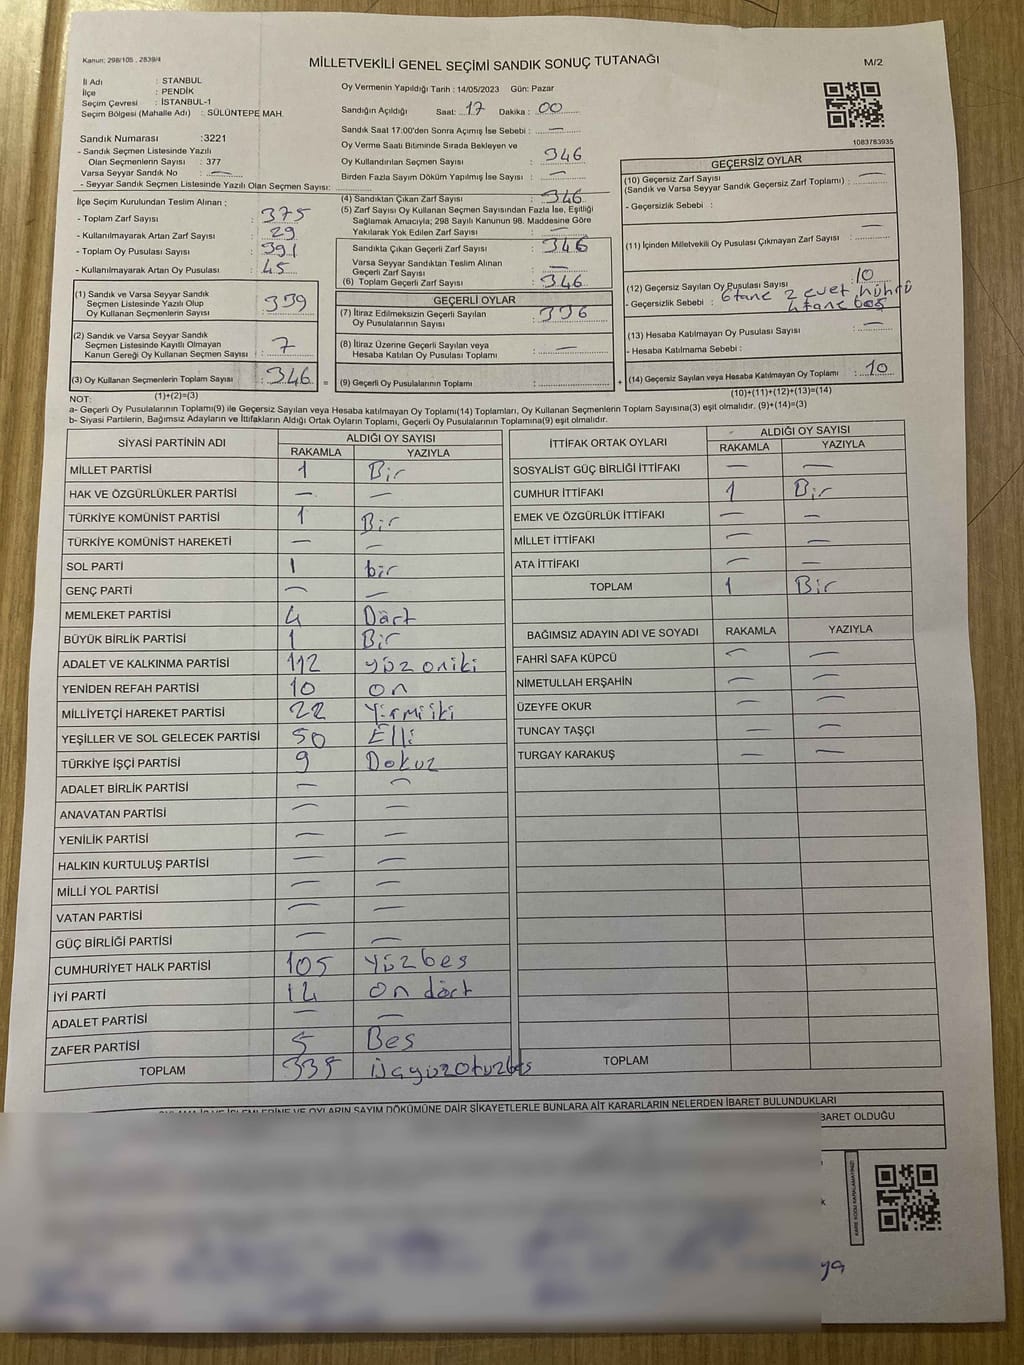 Kanun: 298/105 , 2839/4
MİLLETVEKİLİ GENEL SEÇİMİ SANDIK SONUÇ TUTANAĞI
M/2
İl Adı : STANBUL
İlçe : PENDİK
Seçim Çevresi : İSTANBUL-1
Seçim Bölgesi (Mahalle Adı) : SÜLÜNTEPE MAH.
Sandık Numarası :3221
- Sandık Seçmen Listesinde Yazılı
Olan Seçmenlerin Sayısı : 377
Varsa Seyyar Sandık No : —
- Seyyar Sandık Seçmen Listesinde Yazılı Olan Seçmen Sayısı:
Oy Vermenin Yapıldığı Tarih : 14/05/2023 Gün: Pazar
Sandığın Açıldığı Saat: 17 Dakika : 00
Sandık Saat 17:00'den Sonra Açımış İse Sebebi : —
Oy Verme Saati Bitiminde Sırada Bekleyen ve
Oy Kullandırılan Seçmen Sayısı : 346
Birden Fazla Sayım Döküm Yapılmış İse Sayısı : —
1083783935
İlçe Seçim Kurulundan Teslim Alınan :
- Toplam Zarf Sayısı : 375
- Kullanılmayarak Artan Zarf Sayısı : 29
- Toplam Oy Pusulası Sayısı : 391
- Kullanılmayarak Artan Oy Pusulası : 45
(1) Sandık ve Varsa Seyyar Sandık
Seçmen Listesinde Yazılı Olup
Oy Kullanan Seçmenlerin Sayısı : 339
(2) Sandık ve Varsa Seyyar Sandık
Seçmen Listesinde Kayıtlı Olmayan
Kanun Gereği Oy Kullanan Seçmen Sayısı : 7
(3) Oy Kullanan Seçmenlerin Toplam Sayısı : 346 =
(1)+(2)=(3)
(4) Sandıktan Çıkan Zarf Sayısı : 346
(5) Zarf Sayısı Oy Kullanan Seçmen Sayısından Fazla İse, Eşitliği
Sağlamak Amacıyla; 298 Sayılı Kanunun 98. Maddesine Göre
Yakılarak Yok Edilen Zarf Sayısı : —
Sandıkta Çıkan Geçerli Zarf Sayısı : 346
Varsa Seyyar Sandıktan Teslim Alınan
Geçerli Zarf Sayısı : —
(6) Toplam Geçerli Zarf Sayısı : 346
GEÇERLİ OYLAR
(7) İtiraz Edilmeksizin Geçerli Sayılan
Oy Pusulalarının Sayısı : 336
(8) İtiraz Üzerine Geçerli Sayılan veya
Hesaba Katılan Oy Pusulası Toplamı : —
(9) Geçerli Oy Pusulalarının Toplamı : +
GEÇERSİZ OYLAR
(10) Geçersiz Zarf Sayısı
(Sandık ve Varsa Seyyar Sandık Geçersiz Zarf Toplamı) : —
- Geçersizlik Sebebi :
(11) İçinden Milletvekili Oy Pusulası Çıkmayan Zarf Sayısı : —
(12) Geçersiz Sayılan Oy Pusulası Sayısı : 10
- Geçersizlik Sebebi : 6tane 2 evet mührü
4tane boş
(13) Hesaba Katılmayan Oy Pusulası Sayısı : —
- Hesaba Katılmama Sebebi :
(14) Geçersiz Sayılan veya Hesaba Katılmayan Oy Toplamı : 10
(10)+(11)+(12)+(13)=(14)
NOT:
a- Geçerli Oy Pusulalarının Toplamı(9) ile Geçersiz Sayılan veya Hesaba katılmayan Oy Toplamı(14) Toplamları, Oy Kullanan Seçmenlerin Toplam Sayısına(3) eşit olmalıdır. (9)+(14)=(3)
b- Siyasi Partilerin, Bağımsız Adayların ve İttifakların Aldığı Ortak Oyların Toplamı, Geçerli Oy Pusulalarının Toplamına(9) eşit olmalıdır.
SİYASİ PARTİNİN ADI ALDIĞI OY SAYISI
RAKAMLA YAZIYLA
MİLLET PARTİSİ 1 Bir
HAK VE ÖZGÜRLÜKLER PARTİSİ — —
TÜRKİYE KOMÜNİST PARTİSİ 1 Bir
TÜRKİYE KOMÜNİST HAREKETİ — —
SOL PARTİ 1 bir
GENÇ PARTİ — —
MEMLEKET PARTİSİ 4 Dört
BÜYÜK BİRLİK PARTİSİ 1 Bir
ADALET VE KALKINMA PARTİSİ 112 yüz oniki
YENİDEN REFAH PARTİSİ 10 on
MİLLİYETÇİ HAREKET PARTİSİ 22 Yirmiiki
YEŞİLLER VE SOL GELECEK PARTİSİ 50 Elli
TÜRKİYE İŞÇİ PARTİSİ 9 Dokuz
ADALET BİRLİK PARTİSİ — —
ANAVATAN PARTİSİ — —
YENİLİK PARTİSİ — —
HALKIN KURTULUŞ PARTİSİ — —
MİLLİ YOL PARTİSİ — —
VATAN PARTİSİ — —
GÜÇ BİRLİĞİ PARTİSİ — —
CUMHURİYET HALK PARTİSİ 105 Yüzbeş
İYİ PARTİ 14 on dört
ADALET PARTİSİ — —
ZAFER PARTİSİ 5 Bes
TOPLAM 335 üçyüzotuzbes
İTTİFAK ORTAK OYLARI ALDIĞI OY SAYISI
RAKAMLA YAZIYLA
SOSYALİST GÜÇ BİRLİĞİ İTTİFAKI — —
CUMHUR İTTİFAKI 1 Bir
EMEK VE ÖZGÜRLÜK İTTİFAKI — —
MİLLET İTTİFAKI — —
ATA İTTİFAKI — —
TOPLAM 1 Bir
BAĞIMSIZ ADAYIN ADI VE SOYADI RAKAMLA YAZIYLA
FAHRİ SAFA KÜPCÜ — —
NİMETULLAH ERŞAHİN — —
ÜZEYFE OKUR — —
TUNCAY TAŞÇI — —
TURGAY KARAKUŞ — —
TOPLAM
SAYIM DÖKÜMÜNE DAİR ŞİKAYETLERLE BUNLARA AİT KARARLARIN NELERDEN İBARET BULUNDUKLARI
BARET OLDUĞU